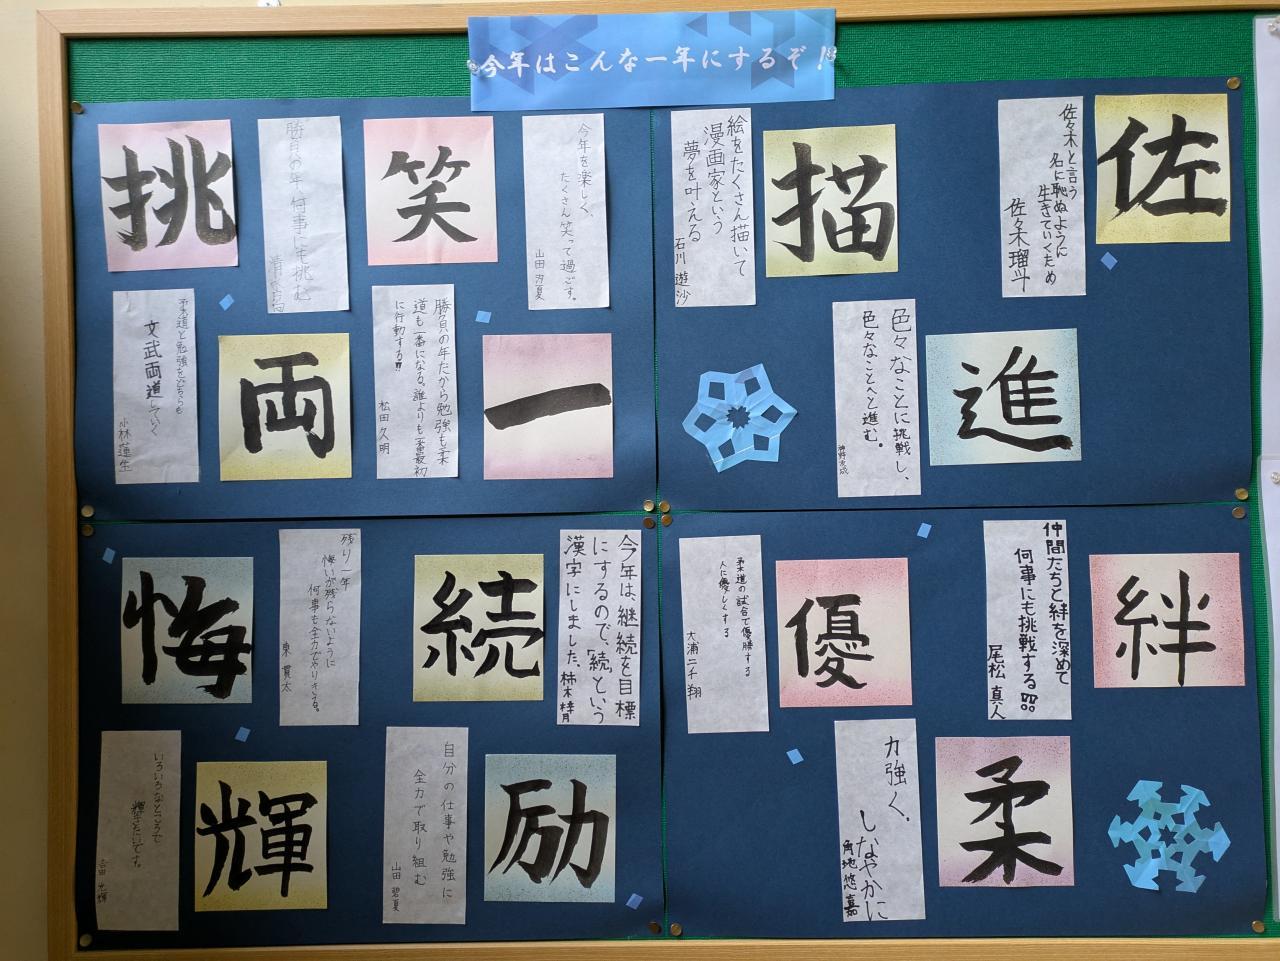 今年はこんな一年にするぞ!!
佐
佐々木と言う
名に恥ぬように
生きていくため
佐々木瑠斗
描
絵をたくさん描いて
漫画家という
夢を叶える
石川 遊沙
進
色々なことに挑戦し、
色々なことへと進む。
笑
今年を楽しく、
たくさん笑って過ごす。
山田 汐夏
挑
勝負の年、何事にも挑む
一
勝負の年だから勉強も柔
道も一番になる。誰よりも一番最初
に行動する!!
松田 久明
両
柔道と勉強をどちらも
文武両道していく
小林 蓮生
続
今年は、継続を目標
にするので、「続」という
漢字にしました。
悔
残り一年
悔いが残らないように
何事も全力でやりきる。
東 貫太
励
自分の仕事や勉強に
全力で取り組む
山田 碧夏
輝
いろいろなところで
輝きたいです。
吉田 光輝
絆
仲間たちと絆を深めて
何事にも挑戦する!!!
尾松 真人
優
柔道の試合で優勝する
人に優しくする
大浦 二千翔
柔
力強く、
しなやかに
角地 悠嘉